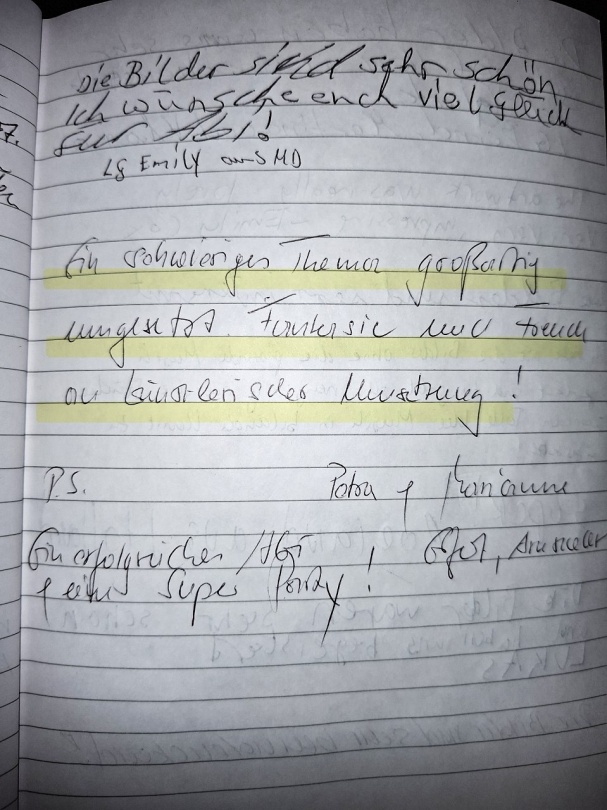 Die Bilder sind sehr schön
Ich wünsche euch viel glück
für Abi!
LG Emily aus MD
Ein schwieriges Thema großartig
umgesetzt. Fantasie und Freude
an künstlerischer Umsetzung!
P.S. Petra + Marianne
Ein erfolgreiches Abi ! Erfurt,
+ eine Super Party!